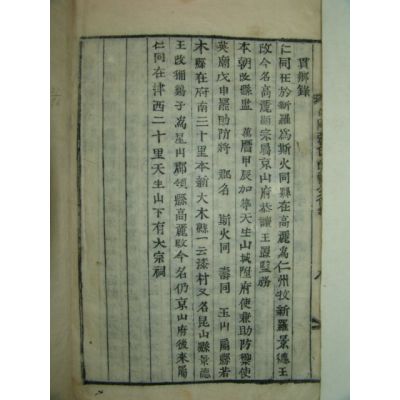 貫鄉錄
仁同在於新羅爲斯火同縣在高麗爲仁州牧新羅景德王
改今名高麗顯宗屬京山府恭讓王置監務
本朝改縣監 萬曆甲辰加等天生山城陞府使兼助防禦使
英廟戊申罷助防將 郡名 斯火同 壽同 玉山 屬縣若
木縣在府南三十里本新大木縣一云漆村又名昆山縣景德
王改 谿子爲星山郡領縣高麗改今名仍京山府後來屬
仁同在津西二十里天生山下有大宗祠